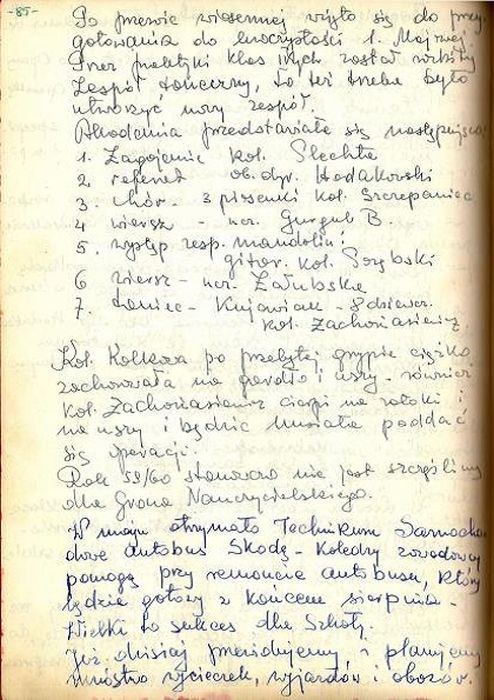 -85-
Po przerwie wiosennej wzięto się do przy
gotowania do uroczystości 1. Majowej.
Przez praktyki klas IItych został rozbity
Zespół taneczny, to też trzeba było
utworzyć nowy zespół.
Akademia przedstawiała się następująco:
1. Zagajenie kol. Slechta
2. referat ob. dyr. Horakowski
3 chór - 3 piosenki kol. Szczepaniec
4 wiersz - ucz. Gurgul B.
5. występ zesp. mandolin i
gitar. kol.
6 wiersz - ucz. Załubska
7. taniec - Kujawiak - 8 dziewcz.
kol. Zachariasiewicz
Kol. Kolkowa po przebytej grypie ciężko
zachorowała na gardło i uszy. również
kol. Zachariasiewicz cierpi na zatoki i
na uszy i będzie musiała poddać
się operacji.
Rok 59/60 stanowczo nie jest szczęśliwy
dla Grona Nauczycielskiego.
W maju otrzymało Technikum Samocho
dowe autobus Skodę - Koledzy zawodowcy
pomogą przy remoncie autobusu, który
będzie gotowy z końcem sierpnia -
Wielki to sukces dla Szkoły.
Już dzisiaj i planujemy
mnóstwo wycieczek, wyjazdów i obozów.